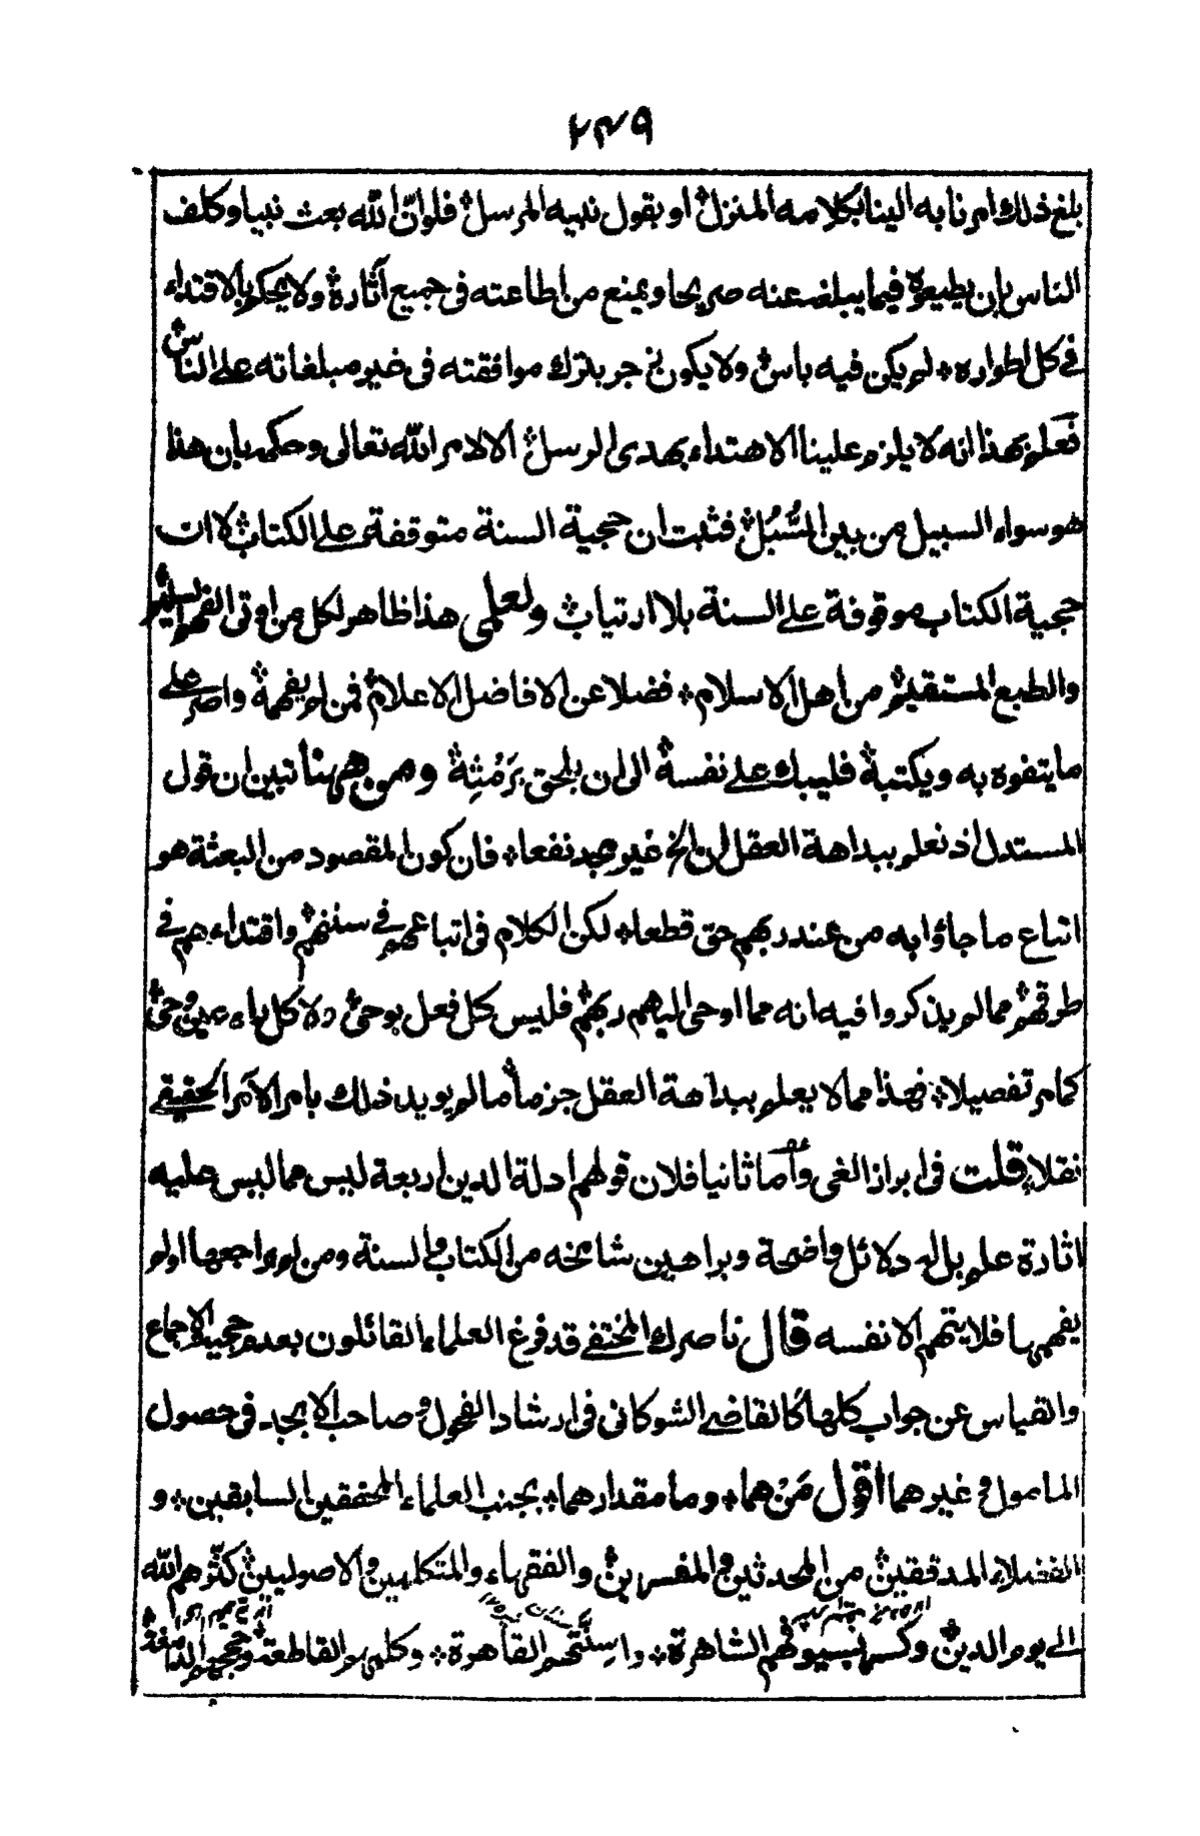 ٢٤٩
بلغ ذلك امرنا به الينا بكلامه المنزل او بقول نبيه المرسل فلو ان الله بعث نبيا وكلف
الناس بان يطيعوه فيما يبلغه عنه صريحا ويمنع من اطاعته فى جميع آثاره ولا يحكم بالاقتداء
فى كل اطواره لم يكن فيه باس ولا يكون زجر بترك موافقته فى غير مبلغاته على الناس
فعلم بهذا انه لا يلزم علينا الاهتداء بهدى الرسل الا لامر الله تعالى وحكمه بان هذا
هو سواء السبيل من بين السُّبُل فثبت ان حجية السنة متوقفة على الكتاب لا ان
حجية الكتاب موقوفة على السنة بلا ارتياب ولعلمى هذا ظاهر لكل من اوتى الفهم السليم
والطبع المستقيم من اهل الاسلام فضلا عن الافاضل الاعلام فمن لم يفهمه واصر على
ما يتفوه به ويكتبه فليبك على نفسه الى ان يلحق بِرَمْثِه ومن ههنا تبين ان قول
المستدل اذ نعلم ببداهة العقل ان الخ غير مجد نفعا فان كون المقصود من البعثة هو
اتباع ما جاؤا به من عند ربهم حق قطعا لكن الكلام فى اتباعهم فى سننهم واقتداءهم فى
طرقهم مما لم يذكروا فيه انه مما اوحى اليهم ربهم فليس كل فعل بوحى ولا كل راء عين وحى
كما مر تفصيلا فهذا مما لا يعلم ببداهة العقل جزما ما لم يويد ذلك بامر الآمر الحقيقى
نقلا قلت فى ابراز الغى واما ثانيا فلان قولهم ادلة الدين اربعة ليس مما ليس عليه
اثارة علم بل له دلائل واضحة وبراهين شامخه من الكتاب والسنة ومن لم يراجعها او لم
يفهمها فلا يتهم الا نفسه قال ناصرك المختفى قد فرغ العلماء القائلون بعدم حجية الاجماع
والقياس عن جواب كلها كالقاضى الشوكانى فى ارشاد الفحول وصاحب الابجد فى حصول
المامول وغيرهما اقول مَنْ هما وما مقدارهما بجنب العلماء المحققين السابقين و
الفضلاء المدققين من المحدثين والمفسرين والفقهاء والمتكلمين والاصوليين كثّرهم الله
الى يوم الدين وكسرهم بسيوفهم الشاهرة واسِنّتهم القاهرة وكلمهم القاطعة وحججهم الدامغة